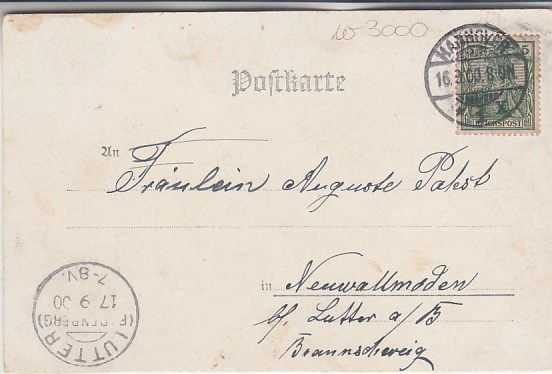 w 3000
HANNOVER
16.9.00.8-9N
5
REICHSPOST
Postkarte
An Fräulein Auguste Pabst
in Neuwallmoden
b/ Lutter a/B
Braunschweig
LUTTER
(BARENBERG)
17 9 00
7-8V.